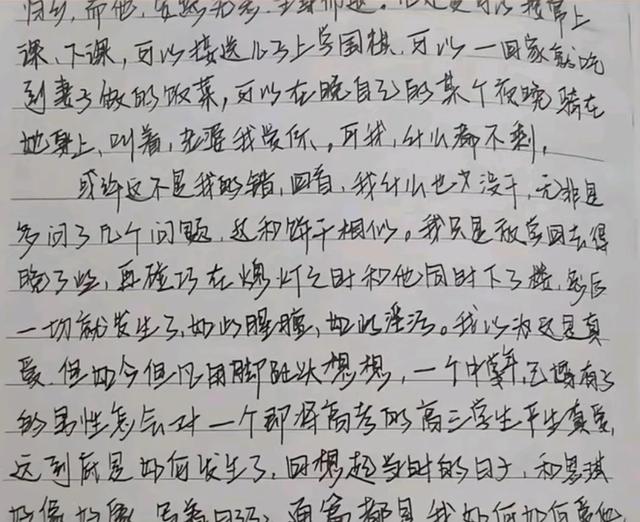 课、下课，可以接送儿子上学围棋，可以一回家就吃
到妻子做的饭菜，可以在晚自己的某个夜晚骑在
她身上，叫着，老婆我爱你、。可我，什么都不剩。
或许这不是我的错，回首，我什么也没干，无非是
多问了几个问题，这和饼干相似。我只是放学回去得
晚了些，再碰巧在熄灯之时和他同时下了楼，然后
一切就发生了，如此腥膻，如此淫污。我以为这是真
爱，但如今但凡用脚趾头想想，一个中年，已婚有子
的男性怎会对一个即将高考的高三学生产生真爱，
这到底是如何发生了，回想起当时的日子，和思琪
好像好像，写着日记，通篇都是我如何如何爱他